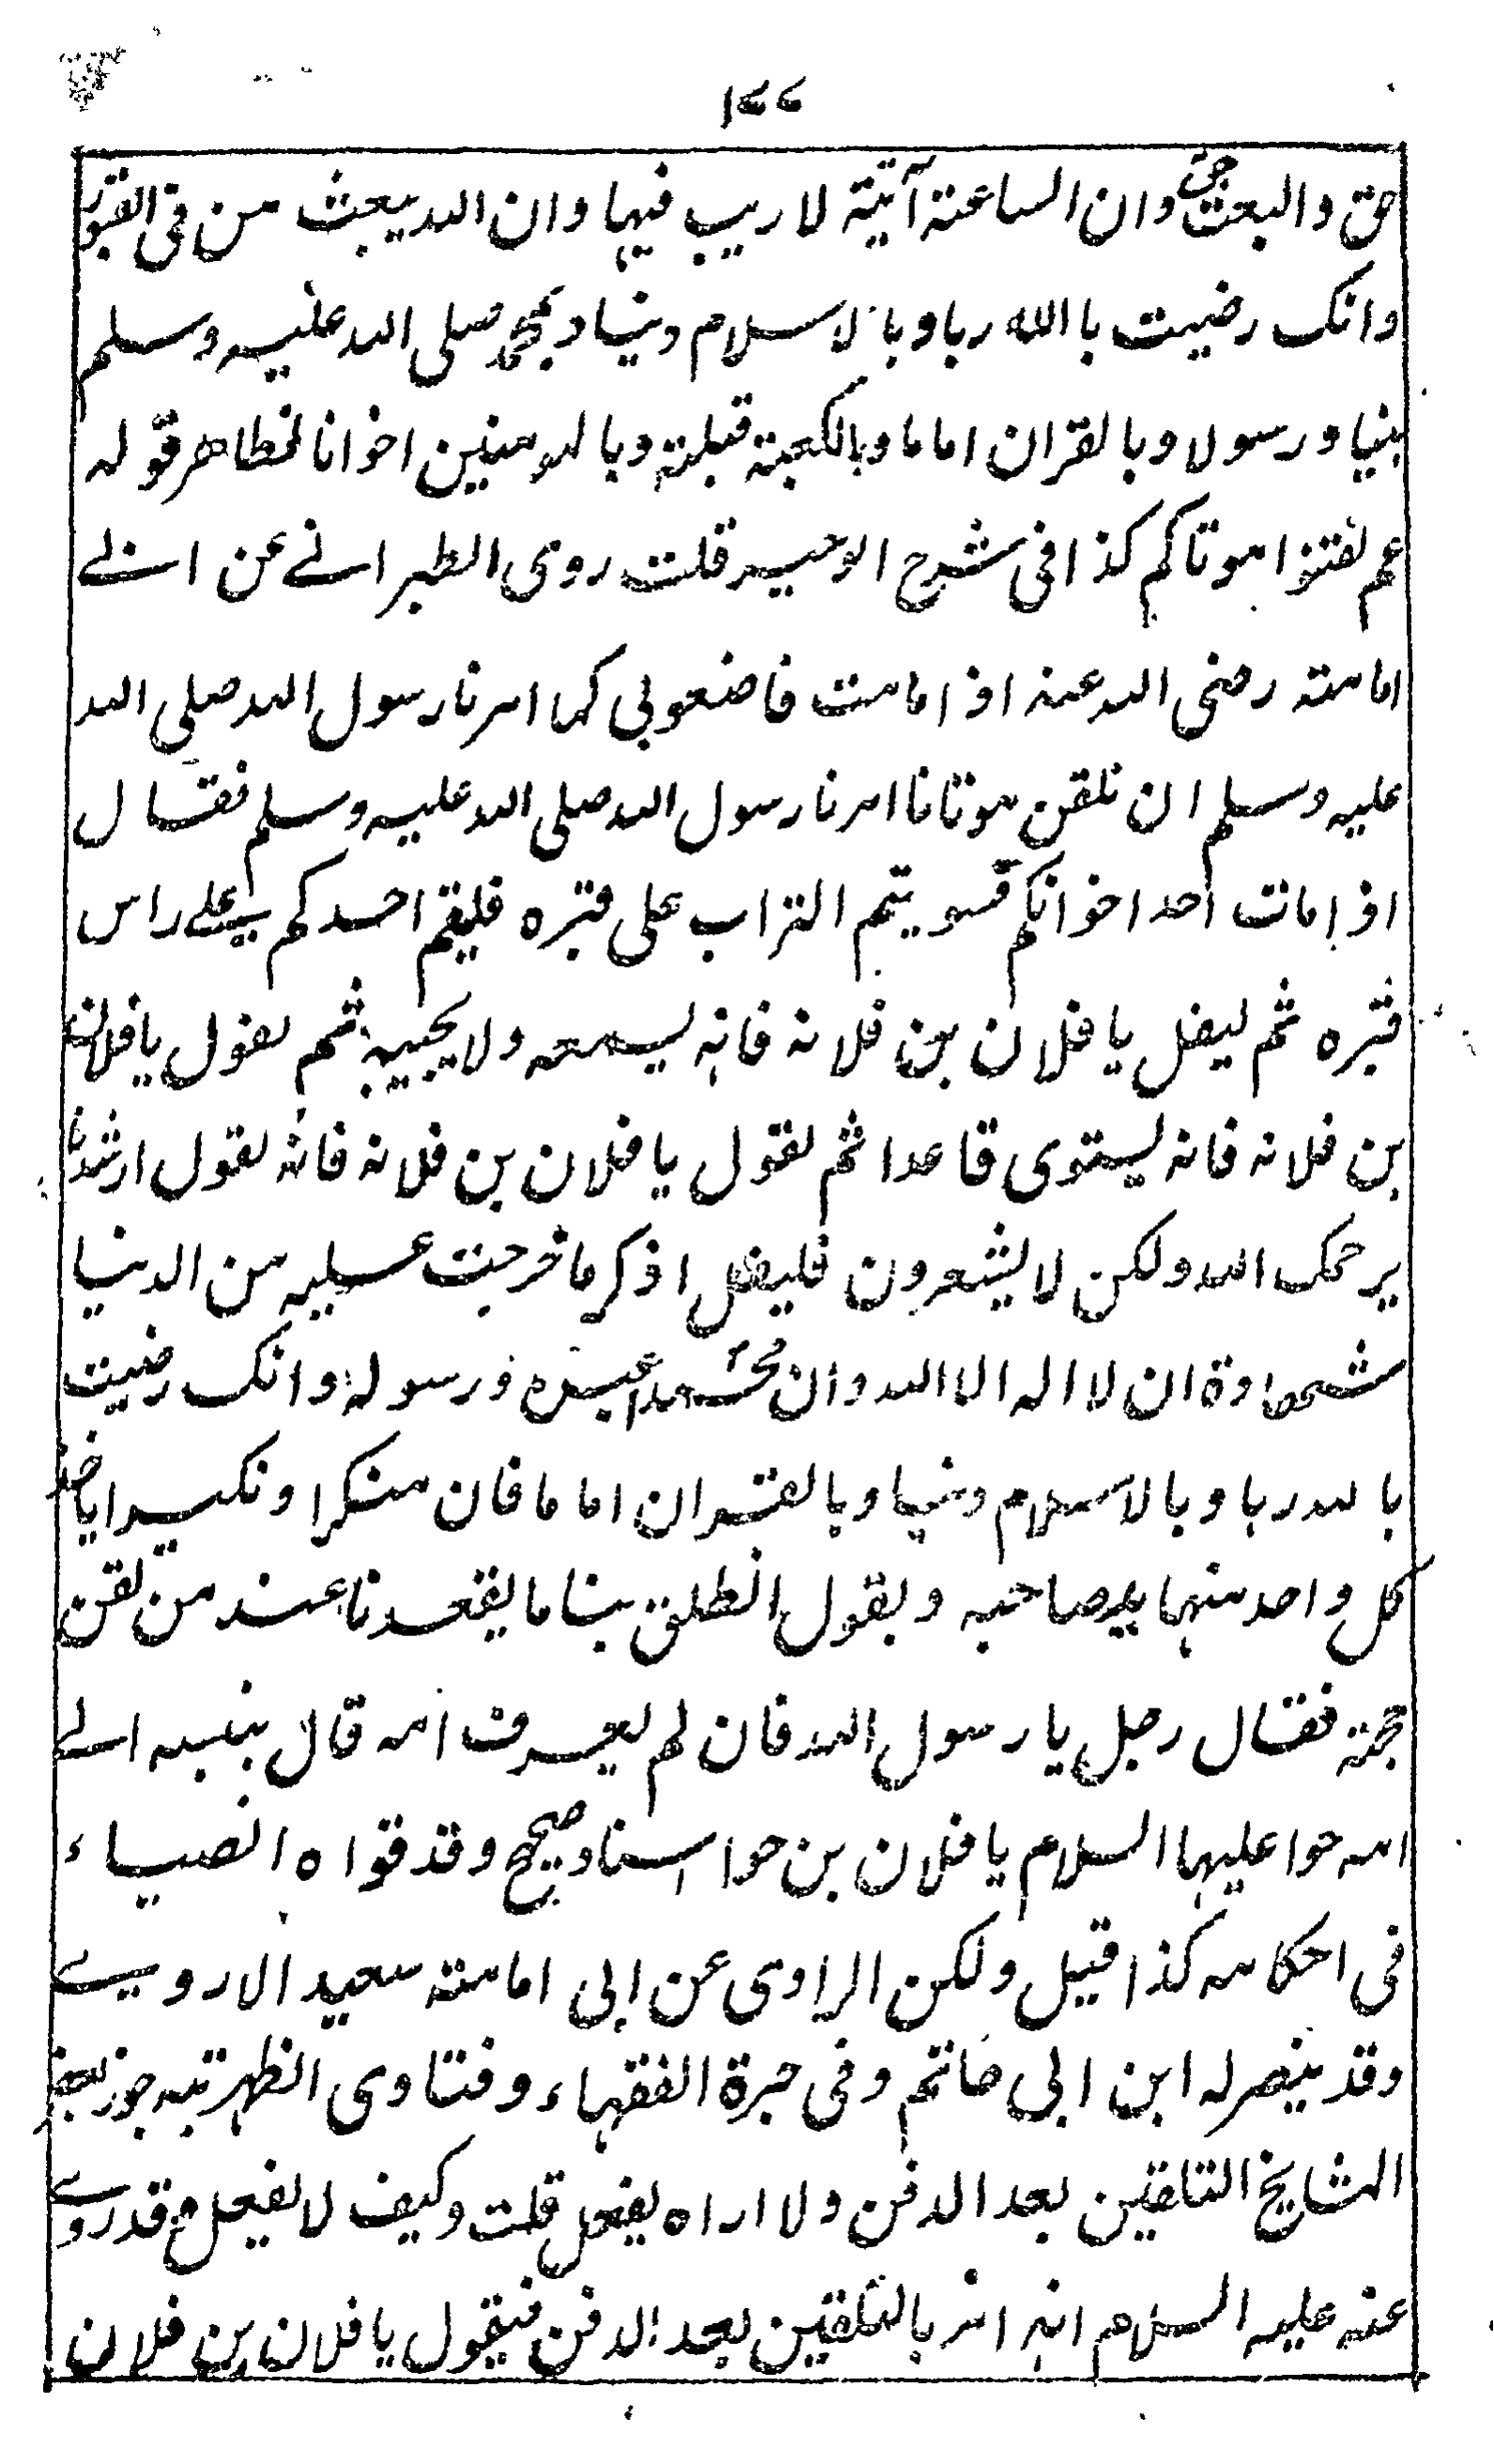 ١٧٧
حق والبعث حق وان الساعة آتية لا ريب فيها وان الله يبعث من فى القبور
وانك رضيت باالله ربا وبالاسلام دينا وبمحمد صلى الله عليه وسلم
نبيا ورسولا وبالقران اماما وبالكعبة قبلة وبالمومنين اخوانا لظاهر قوله
عم لقنوا موتاكم كذا فى شرح الوحيد قلت روى الطبرانے عن ابے
امامة رضى الله عنه اذا مت فاضعوبى كما امرنا رسول الله صلى الله
عليه وسلم ان نلقن موتانا امرنا رسول الله صلى الله عليه وسلم فقال
اذا مات احد اخوانكم فسويتم التراب على قبره فليقم احدكم علے راس
قبره ثم ليقل يا فلان بن فلانه فانه يسمعه ولا يجيبه ثم يقول يا فلان
بن فلانه فانه ليستوى قاعدا ثم يقول يا فلان بن فلانه فانه يقول ارشدنا
يرحمك الله ولكن لا يشعرون فليقل اذكر ما خرجت عليه من الدنيا
شهادة ان لا اله الا الله وان محمدا عبده ورسوله وانك رضيت
بالله ربا وبالاسلام دينا وبالقران اماما فان منكرا ونكيرا ياخذ
كل واحد منهما بيد صاحبه ويقول انطلق بنا ما يقعدنا عند من لقن
حجة فقال رجل يا رسول الله فان لم يعرف امه قال ينسبه الے
امه حوا عليها السلام يا فلان بن حوا اسناد صحيح وقد قواه الضياء
فى احكامه كذا قيل ولكن الراوى عن ابى امامة سعيد الاروے
وقد بيضر له ابن ابى حاتم وفى حيرة الفقهاء وفتاوى الظهرية جوز بعض
المشايخ التلقين بعد الدفن ولا اراه يفعل قلت وكيف لا يفعل وقد روے
عنه عليه السلام انه امر بالتلقين بعد الدفن فيقول يا فلان بن فلان